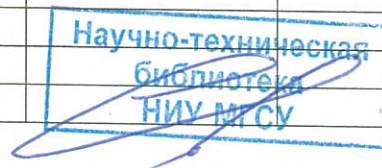 Научно-техническая
библиотека
НИУ МГСУ